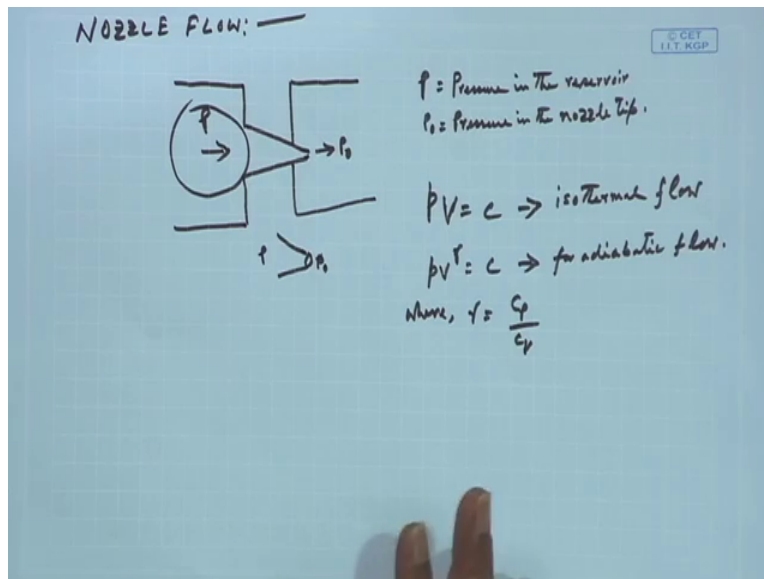 NOZZLE FLOW: —
© CET
I.I.T. KGP
P = Pressure in the reservoir
P₀ = Pressure in the nozzle tip.
P
→ P₀
PV = C → isothermal flow
PV^γ = C → for adiabatic flow.
P
P₀
where, γ = Cp/Cv